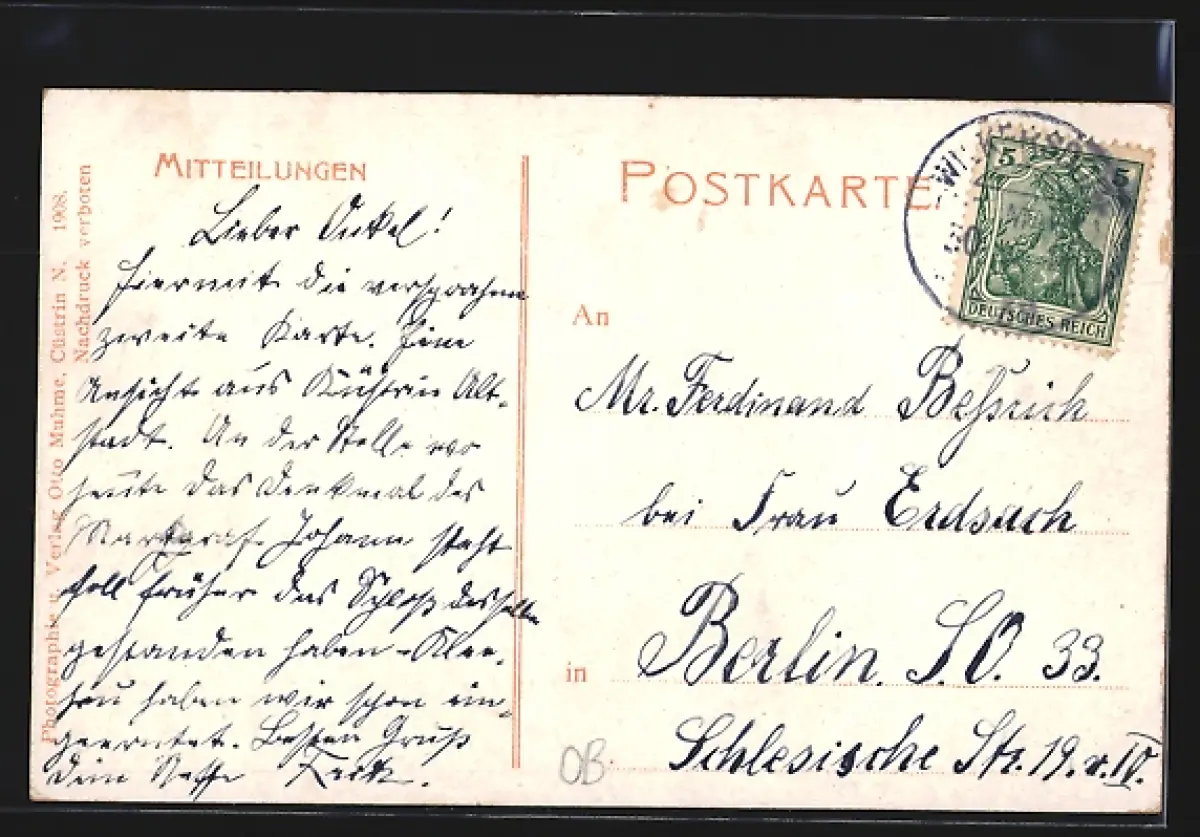 MITTEILUNGEN
Lieber Onkel!
Hiermit die versprochene
zweite Karte. Eine
Ansicht aus Küstrin Alt-
stadt. An der Stelle wo
heute das Denkmal des
Markgraf Johann steht
soll früher das Schloß desselben
gestanden haben - Klee-
heu haben wir schon ein-
geerntet. Besten Gruß
Dein Neffe
Photographie u. Verlag Otto Muhme, Cüstrin N. 1908.
Nachdruck verboten
POSTKARTE
5 5
DEUTSCHES REICH
An
Mr. Ferdinand
bei Frau
in Berlin. S.O. 33.
Schlesische Str. 19. v. IV.
OB